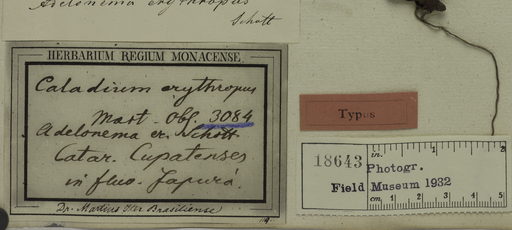 Adelonema erythropus
Schott
HERBARIUM REGIUM MONACENSE
Caladium erythropus
Mart. Obs. 3084
Adelonema er. Schott.
Catar. Cupatenses
in fluv. Japurá.
Dr. Martius Iter Brasiliense
Typus
18643
Photogr.
Field Museum 1932
in. 1 2
cm 1 2 3 4 5